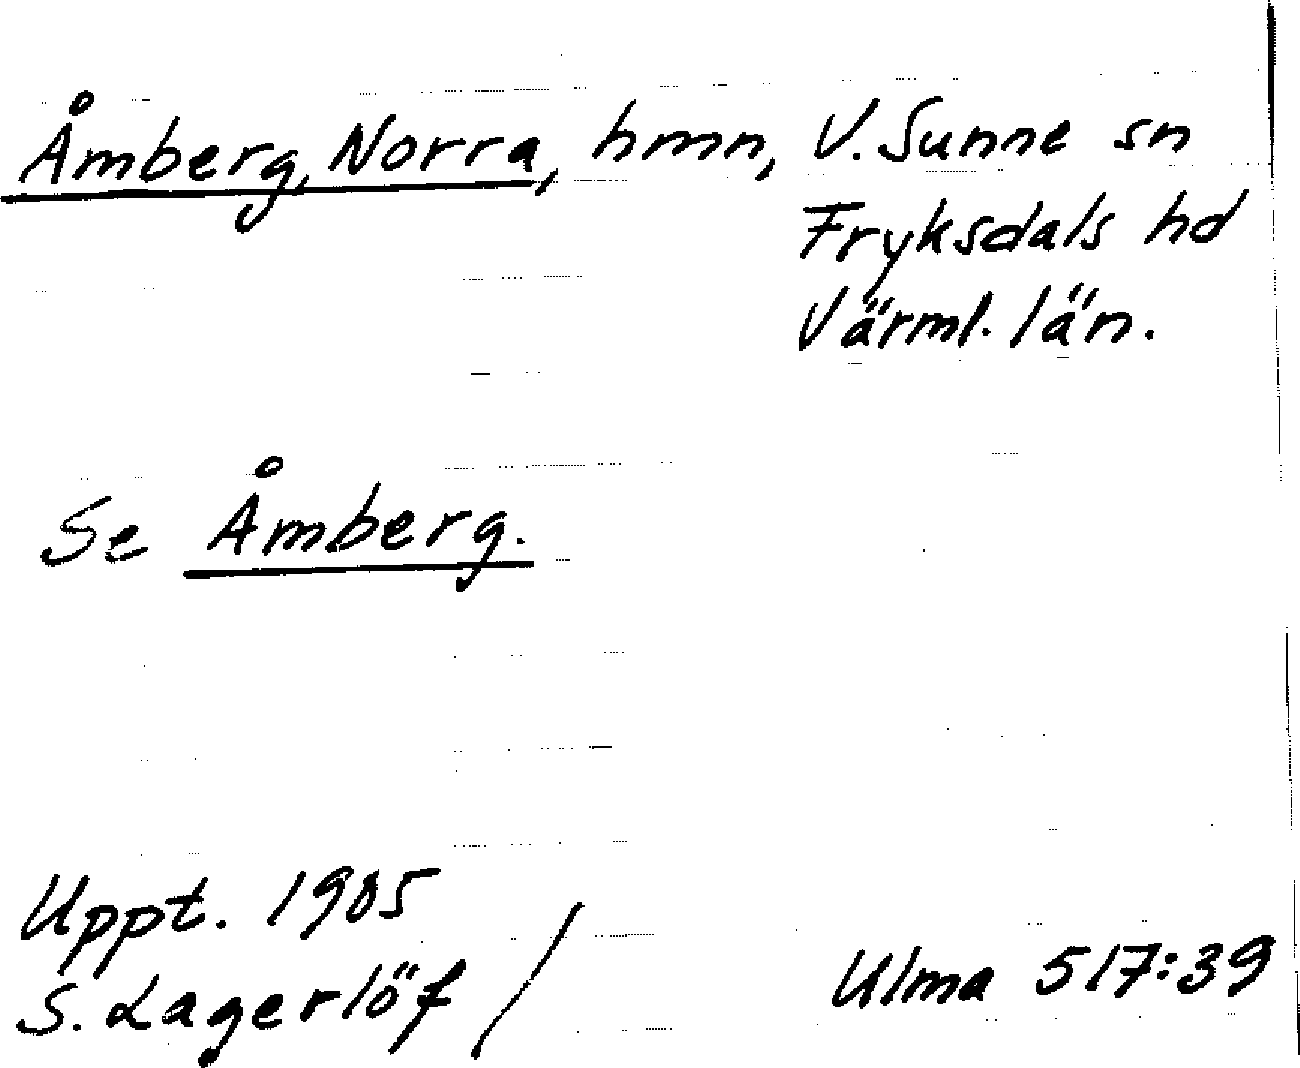 Åmberg, Norra, hmn, V. Sunne sn
Fryksdals hd
Värml. län.
Se Åmberg.
Uppt. 1905
S. Lagerlöf /
Ulma 517:39